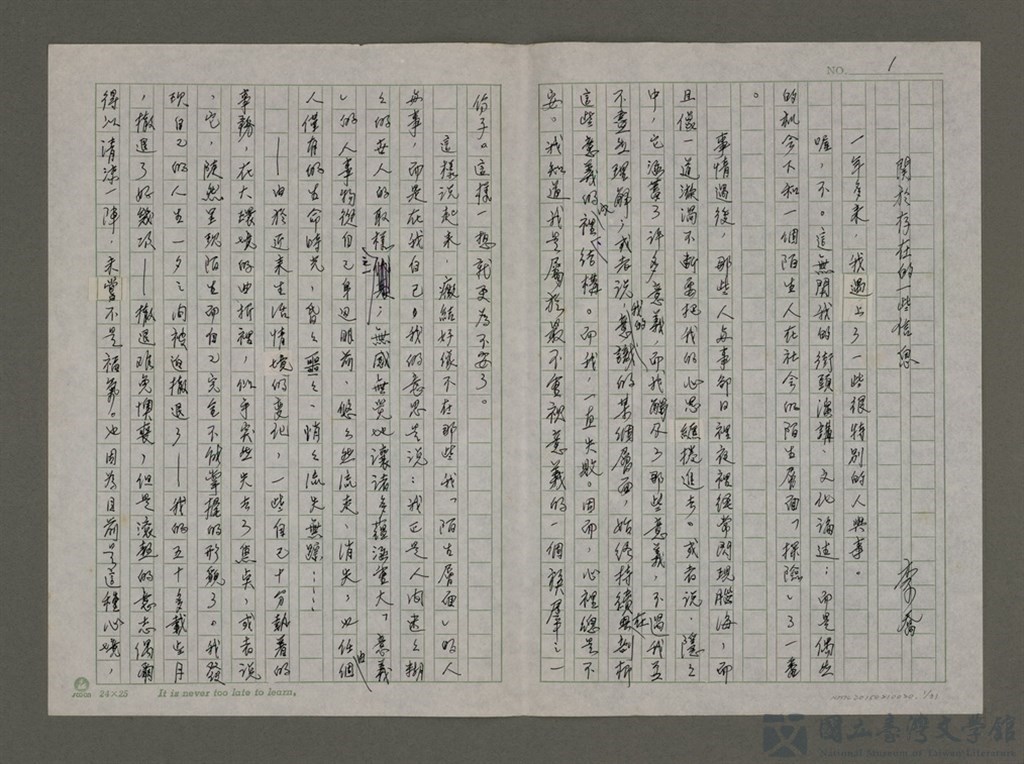 NO. 1
關於存在的一些信息
李喬
一年多來,我遇上了一些很特別的人與事。
喔,不。這無關我的街頭演講、文化論述;而是偶然
的機會下和一個陌生人在社會的陌生層面「探險」了一番
。
事情過後,那些人與事卻日裡夜裡經常閃現腦海,而
且像一道漩渦不斷要把我的心思纏攪進去。或者說,隱隱
中,它涵蓋了許多意義,而我觸及了那些意義,不過我並
不盡然理解;或者說,我的意識的某個層面,始終持續在剖析
這些意義的裡或結構。而我,一直失敗。因而,心裡總是不
安。我知道我是屬於最不會視意義的一個族羣之一
份子。這樣一想就更為不安了。
這樣說起來,癥結好像不在那些我「陌生層面」的人
與事,而是在我自己。我的意思是說:我已是人間迷迷糊
糊的世人的取樣;無感無覺地讓諸多蘊涵重大「意義
」的人事物從自己身邊眼前,悠悠然流走、消失,也任由個
人僅有的生命時光,昏昏噩噩、悄悄流失無蹤……
——由於近來生活情境的變化,一些自己十分執著的
事務,在大環境的曲折裡,似乎突然失去了焦点,或者說
,它,陡然呈現陌生而自己完全不能掌握的形貌了。我發
現自己的人生一夕之間被迫撤退了——我的五十多載歲月
,撤退了好幾項——撤退難免懊喪,但是滾熱的意志偶爾
得以清涼一陣,未嘗不是福氣。也因為目前是這種心境,
24×25
It is never too late to learn.
國立臺灣文學館
National Museum of Taiwan Literature